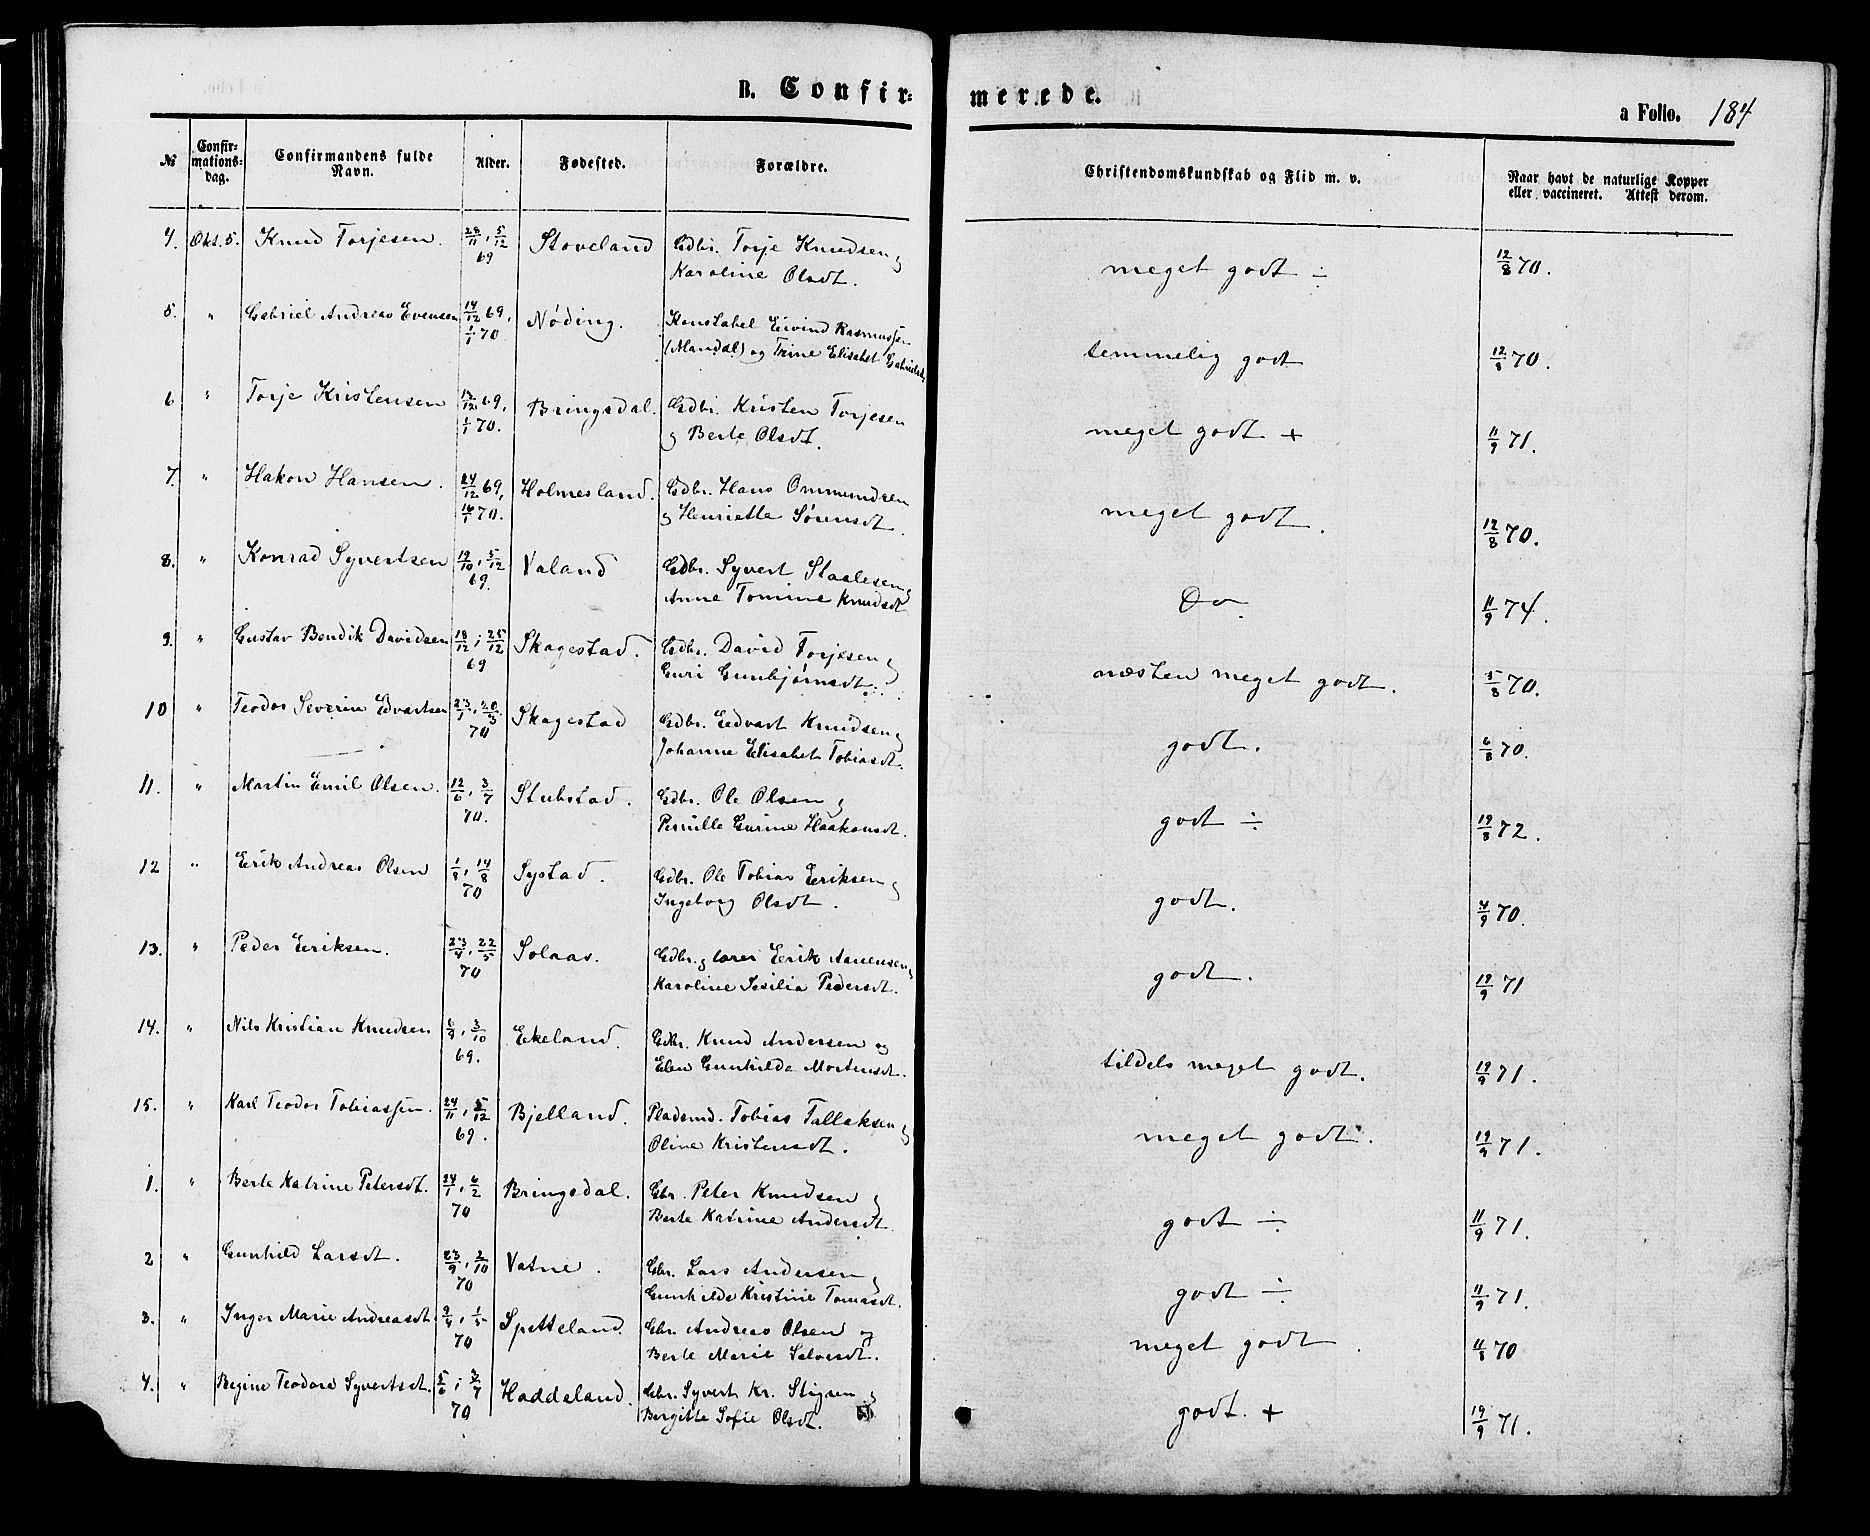 B. Confir=
merede.
a Folio. 184
№ Confir=mations=dag. Confirmandens fulde Navn. Alder. Fødested. Forældre. Christendomskundskab og Flid m. v. Naar havt de naturlige Kopper eller vaccineret. Attest derom.
4. Okt. 5. Knud Torjesen. 28/11, 5/12 69 Stoveland Gdbr. Torje Knudsen og Karoline Olsdt. meget godt ÷ 12/8 70.
5. " Gabriel Andreas Evensen 14/12 69, 1/1 70 Nøding. Konstabel Eivind Rasmussen (Mandal) og Trine Elisabet Gabrielsdt. temmelig godt 12/8 70.
6 " Torje Kristensen 12/12 69, 1/1 70. Bringsdal. Gdbr. Kristen Torjesen og Berte Olsdt. meget godt + 11/9 71.
7. " Hakon Hansen. 24/12 69, 16/1 70. Holmesland. Gdbr. Hans Ommundsen og Henriette Sørensdt. meget godt. 12/8 70.
8. " Konrad Syvertsen 19/10, 5/12 69. Valand Gdbr. Syvert Staalesen og Anne Tomine Knudsdt. Do 11/9 74.
9. " Gustav Bendik Davidsen 18/12; 25/12 69 Skagestad. Gdbr. David Torjesen og Guri Gunbjørnsdt. næsten meget godt. 5/8 70.
10 " Teodor Severin Edvartsen 23/1, 20/3 70 Skagestad Gdbr. Edvart Knudsen og Johanne Elisabet Tobiasdt. godt. 6/8 70.
11. " Martin Emil Olsen. 12/6, 3/7 70. Stubstad. Gdbr. Ole Olsen og Pernille Gurine Haakonsdt. godt ÷ 19/8 72.
12 " Eerik Andreas Olsen 1/8, 14/8 70 Systad. Gdbr. Ole Tobias Eeriksen og Ingeborg Olsdt. godt. 4/9 70.
13. " Peder Eeriksen. 23/4, 22/5 70 Solaas. Gdbr. og lærer Eerik Aanensen og Karoline Sesilia Pedersdt. godt. 19/9 71
14. " Nils Kristian Knudsen 6/9, 3/10 69. Ekeland. Gdbr. Knud Andersen og Elen Gunhilde Mortensdt. tildels meget godt. 19/9 71.
15. " Karl Teodor Tobiassen. 24/11, 5/12 69. Bjelland. Pladsmd. Tobias Tallaksen og Oline Kristensdt. meget godt. 19/9 71.
1. " Berte Katrine Petersdt. 24/1, 6/2 70 Bringsdal. Gbr. Peter Knudsen og Berte Katrine Andersdt. godt ÷ 11/9 71.
2 " Gunhild Larsdt. 23/9, 2/10 70 Vatne. Gbr. Lars Andersen og Gunhilde Kristine Tomasdt. godt ÷ 11/9 71.
3. " Inger Marie Andreasdt. 9/4, 1/5 70 Spetteland. Gbr. Andreas Olsen og Berte Marie Salvesdt. meget godt. 11/8 70
4. " Regine Teodore Syvertsdt. 5/6; 3/7 70 Haddeland. Gbr. Syvert Kr. Stigsen og Bergitte Sofie Olsdt. godt. + 19/9 71.